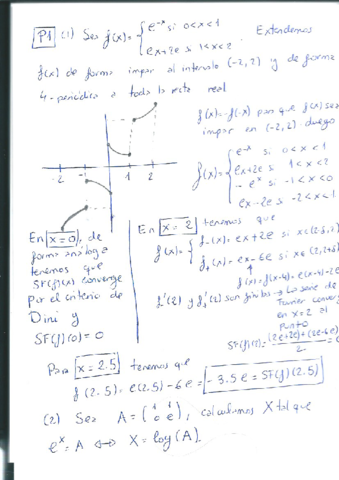 P1 (1) Sea f(x) = { e^-x si 0<x<1
ex+2e si 1<x<2 . Extendemos
f(x) de forma impar al intervalo (-2,2) y de forma
4-periódica a toda la recta real
f(x) = -f(-x) para que f(x) sea
impar en (-2,2) luego
-2 -1 1 2
f(x) = { e^-x si 0<x<1
ex+2e si 1<x<2
-e^x si -1<x<0
ex-2e si -2<x<-1
En x=0, de
forma análoga
tenemos que
SF(f)(x) converge
por el criterio de
Dini y
SF(f)(0) = 0
En x=2 tenemos que
f(x) = { f-(x) = ex+2e si x∈(2-δ,2)
f+(x) = ex-6e si x∈(2,2+δ)
f(x) = f(x-4) = e(x-4)-2e
f'-(2) y f'+(2) son finitos → La serie de
Fourier converge
en x=2 al
punto
SF(f)(2) = (2e+2e)+(2e-6e) / 2 = 0
Para x=2.5 tenemos que
f(2.5) = e(2.5)-6e = -3.5e = SF(f)(2.5)
(2) Sea A = (1 1 0 e), calculamos X tal que
e^X = A ⟺ X = log(A).